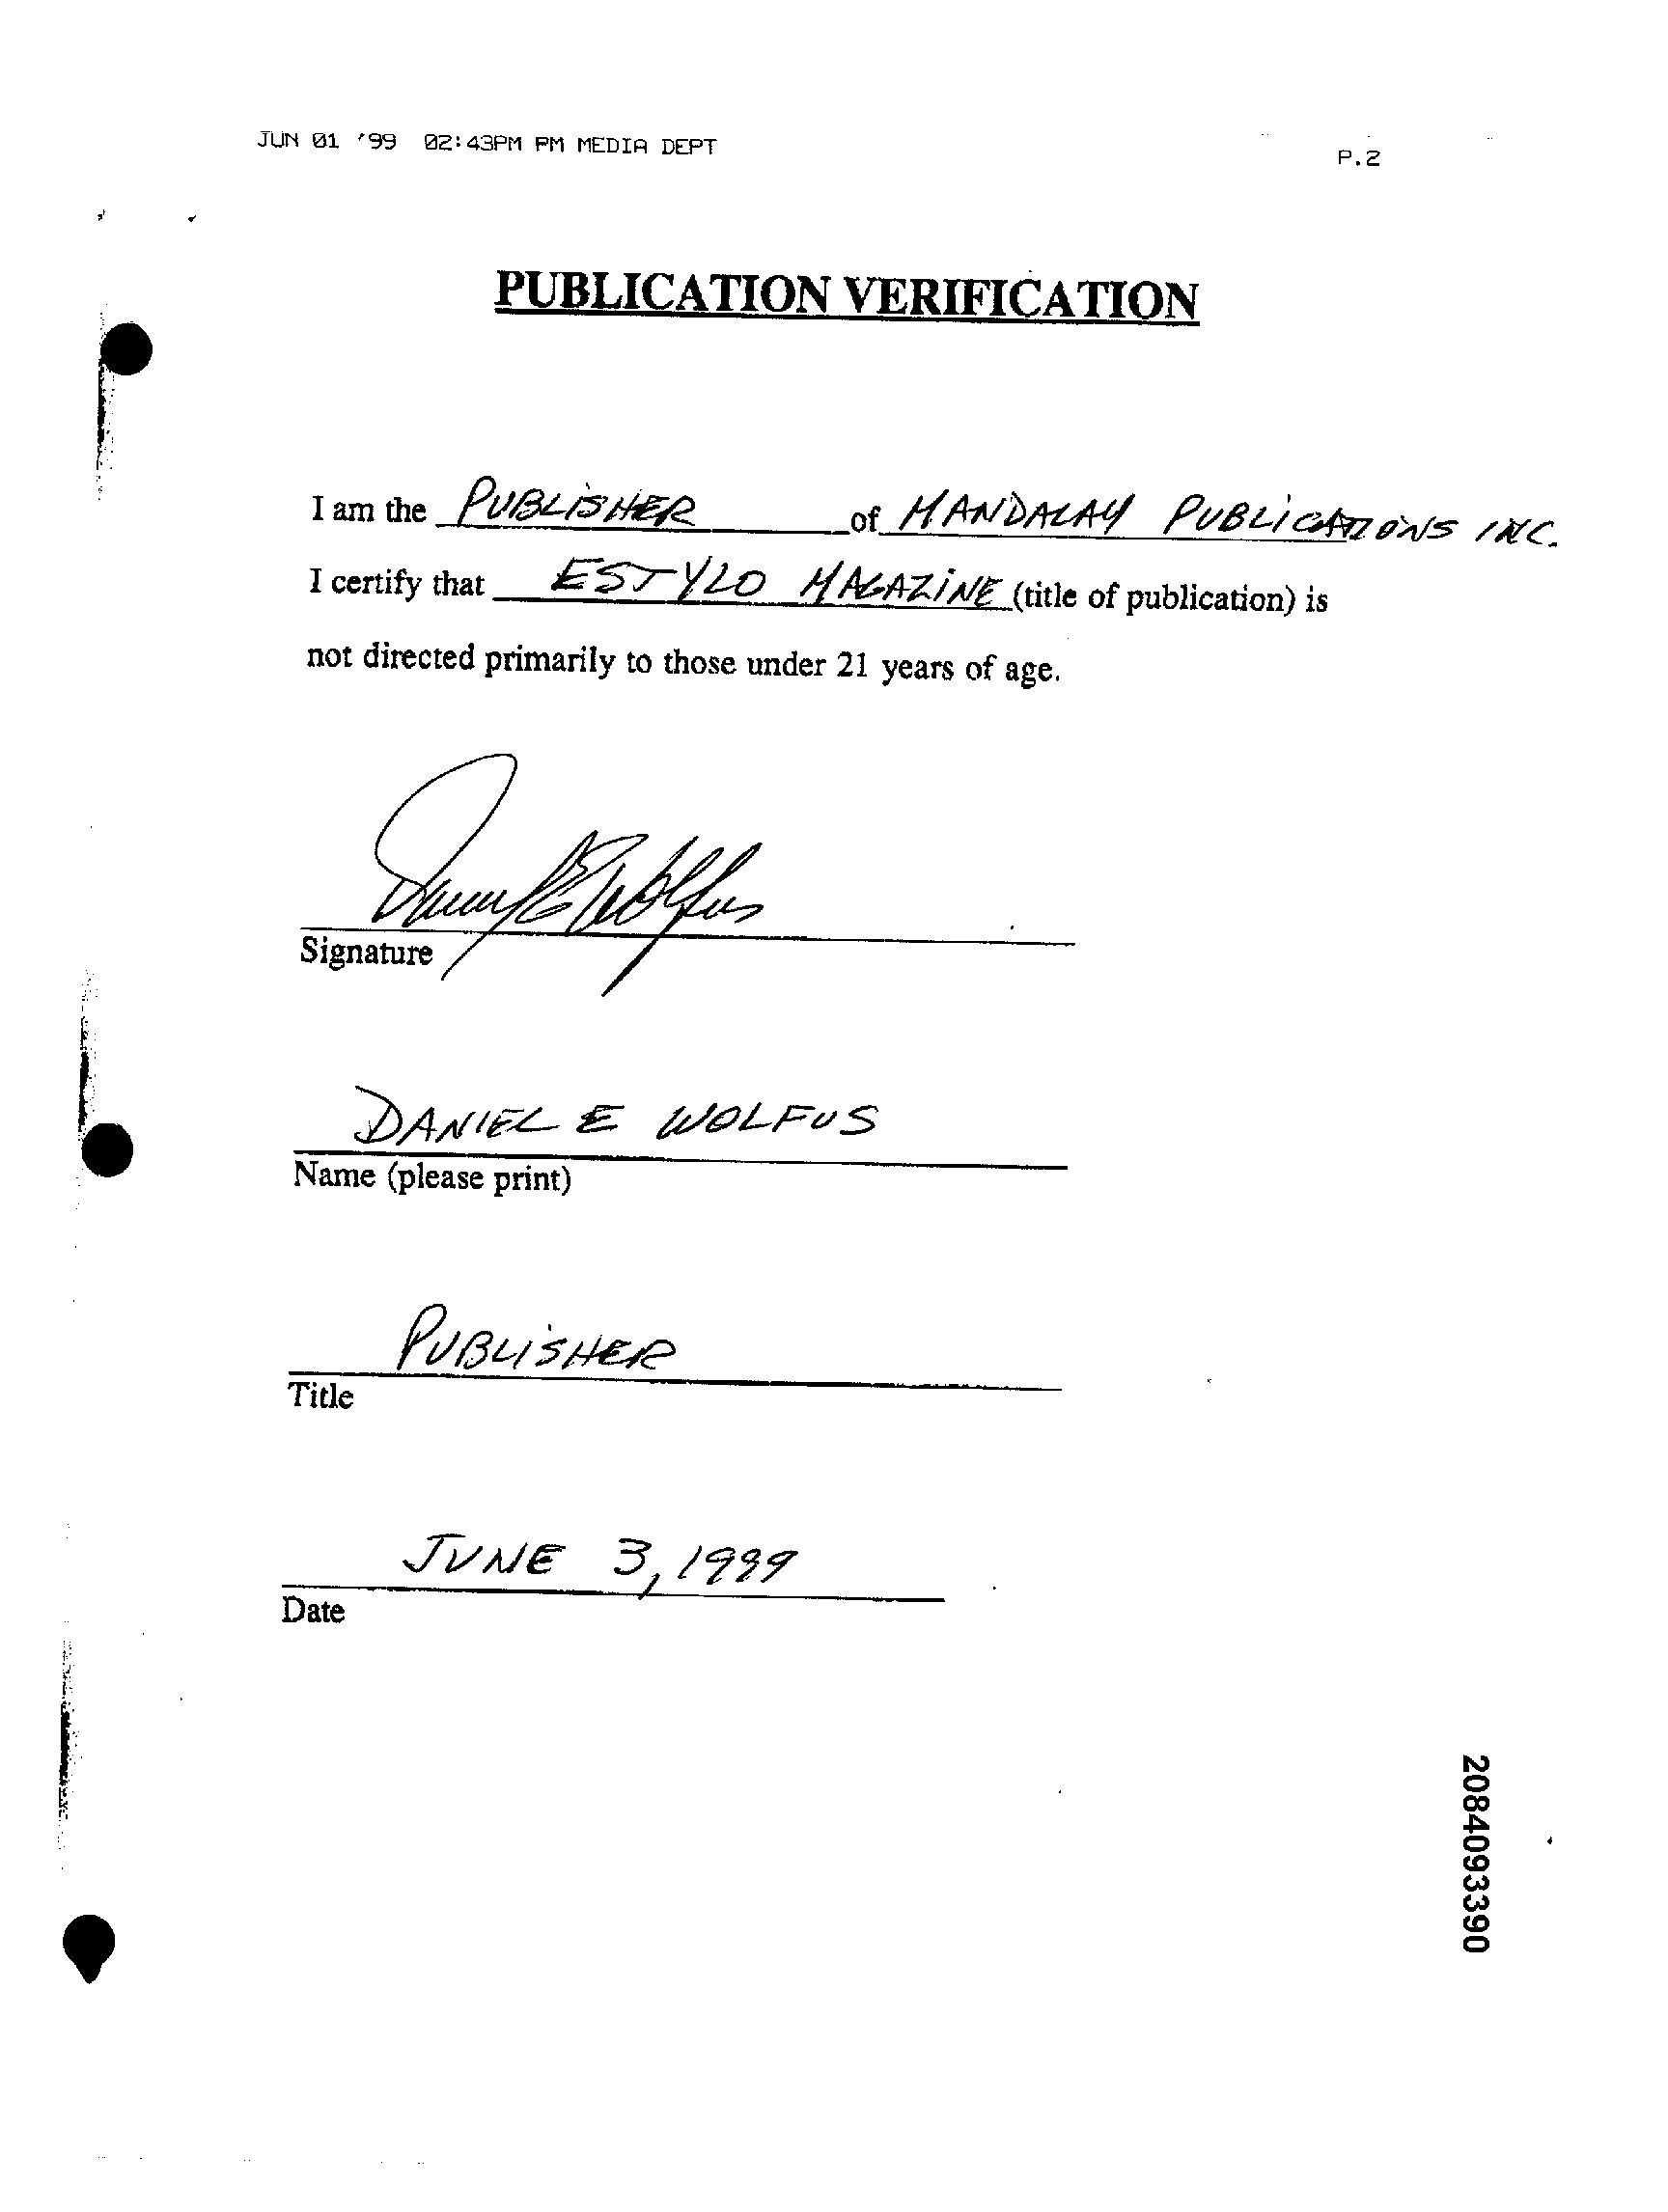 JUN 01 '99 02:43PM PM MEDIA DEPT
P.2
PUBLICATION VERIFICATION
I am the PUBLISHER of MANDALAY PUBLICATIONS INC.
I certify that ESTYLO MAGAZINE (title of publication) is
not directed primarily to those under 21 years of age.
Daniel E Wolfus
Signature
DANIEL E WOLFUS
Name (please print)
PUBLISHER
Title
JUNE 3, 1999
Date
2084093390